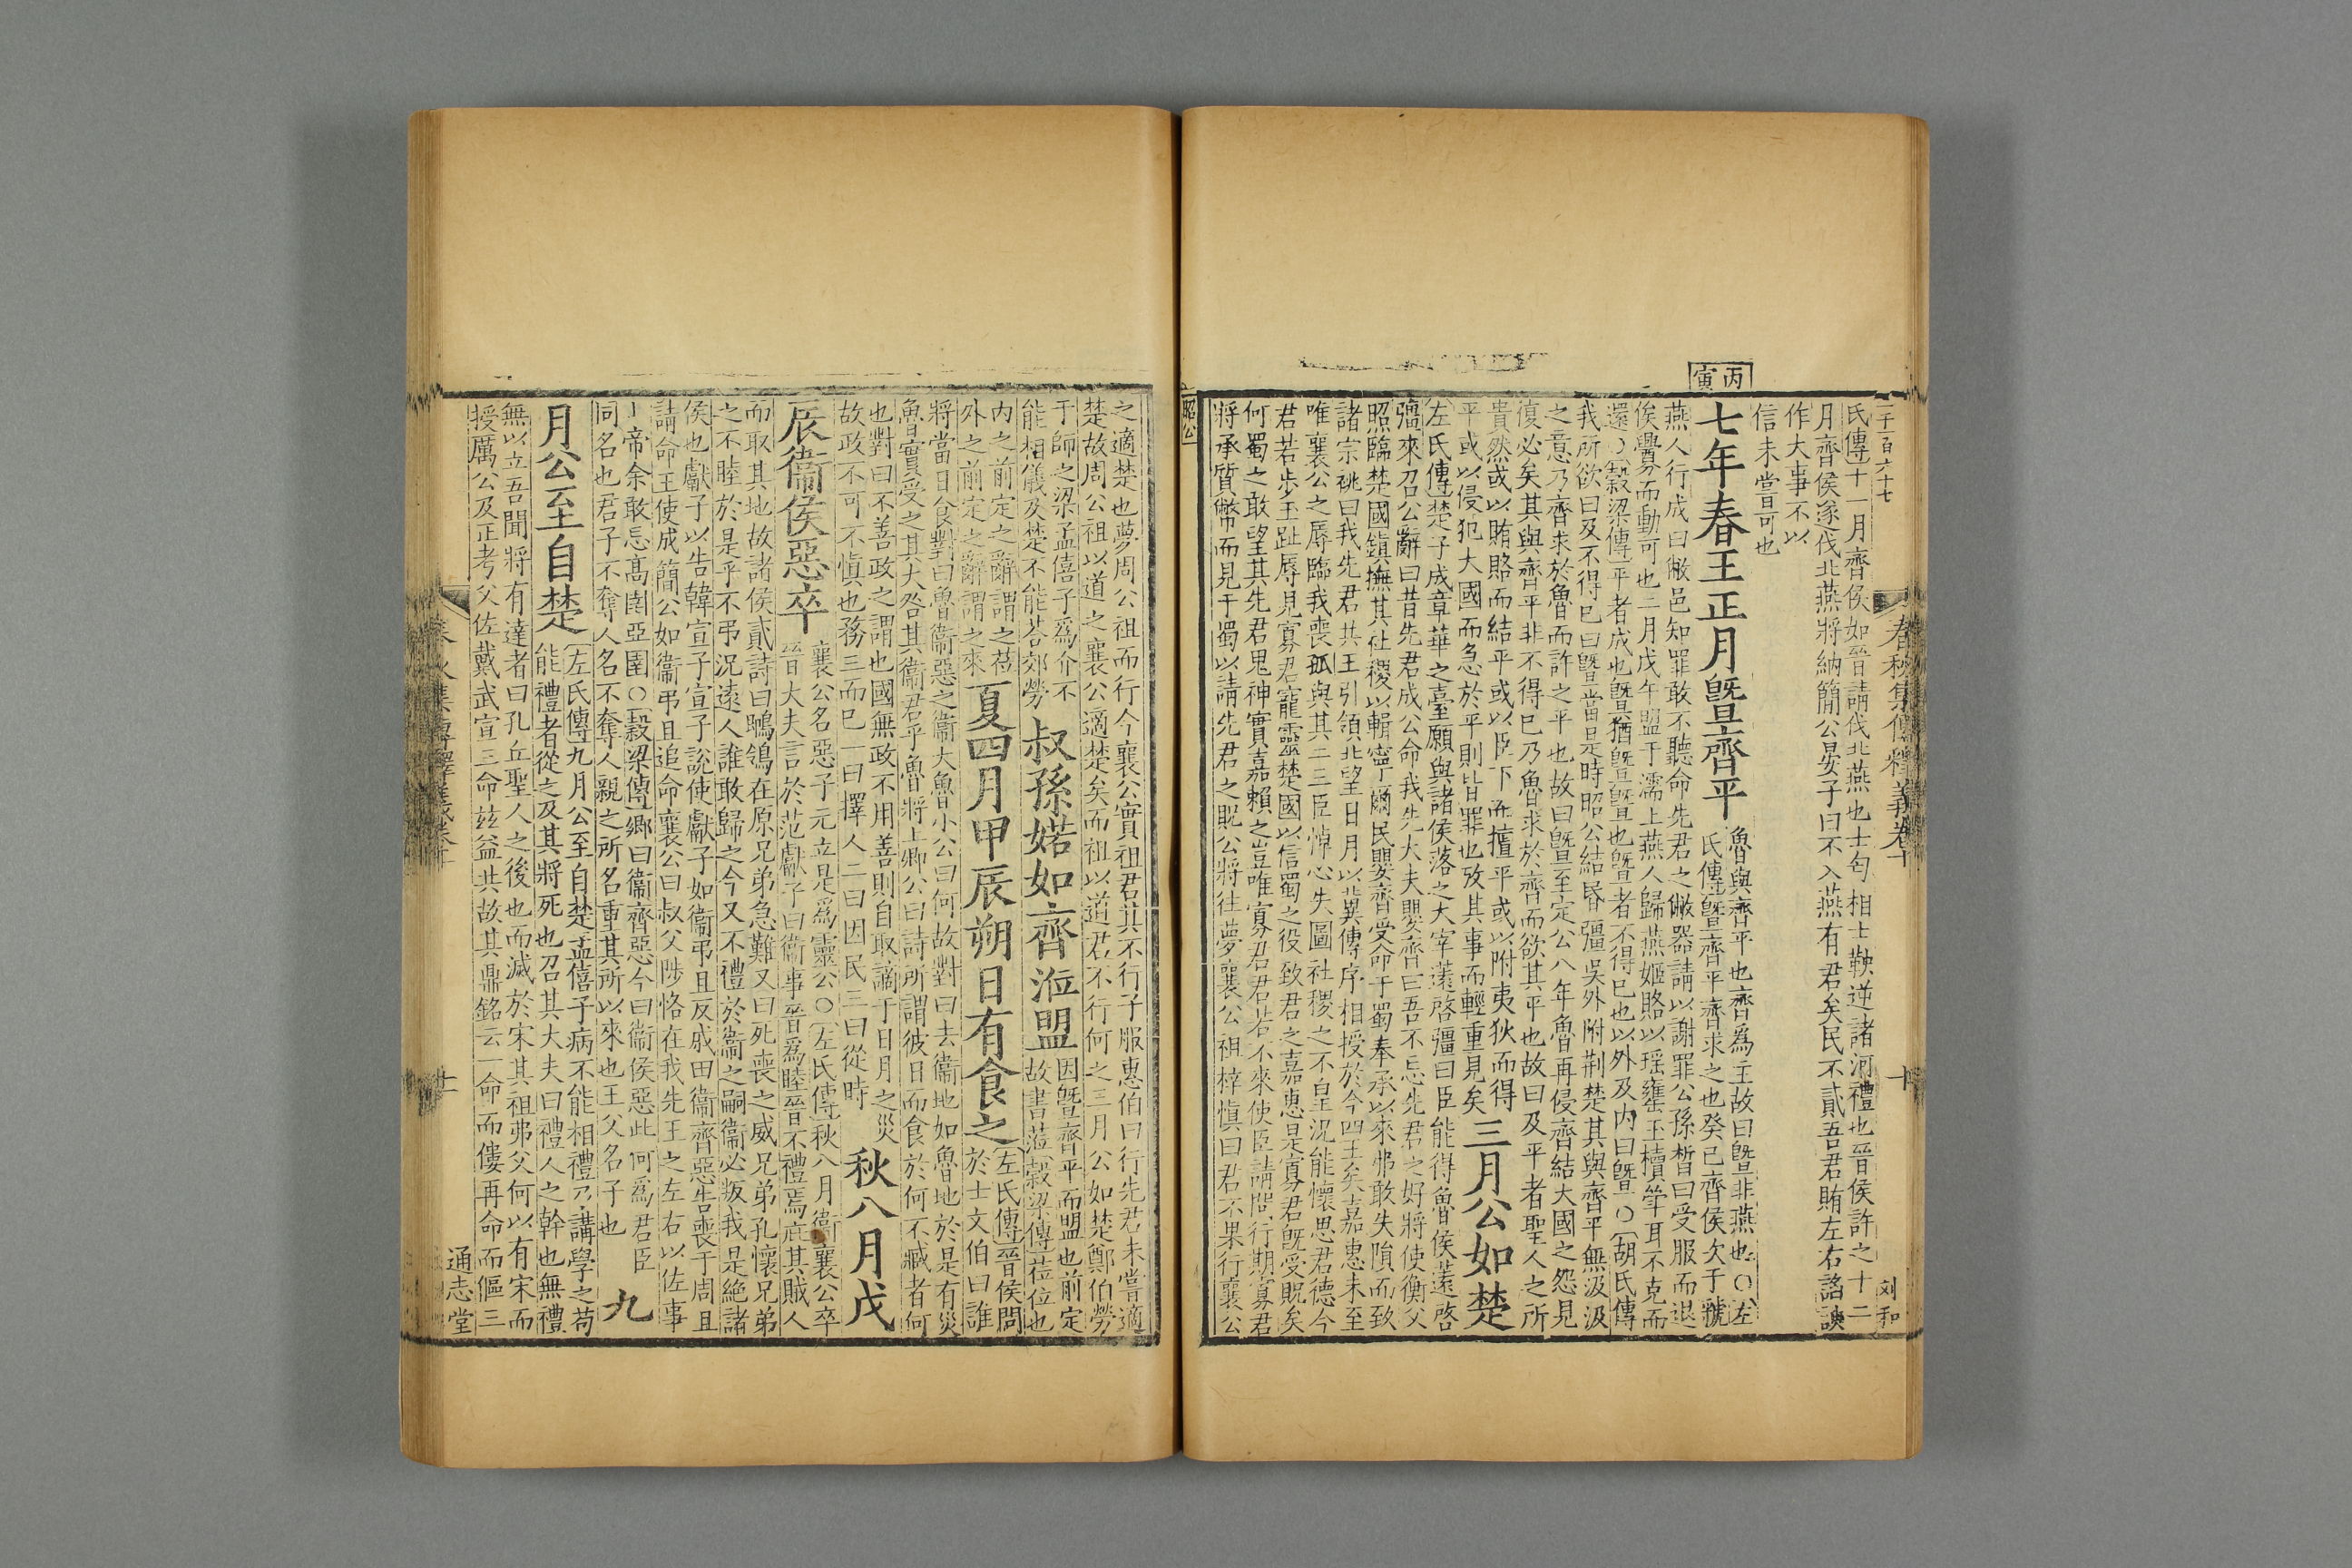 二千一百六十七
春秋集傳釋義卷十
十
刘和
氏傳十一月齊侯如晉請伐北燕也士匄相士鞅逆諸河禮也晉侯許之十二
月齊侯遂伐北燕將納簡公晏子曰不入燕有君矣民不貳吾君賄左右諂諛
作大事不以
信未嘗可也
丙寅
七年春王正月暨齊平
魯與齊平也齊爲主故曰暨非燕也○左
氏傳暨齊平齊求之也癸巳齊侯次于虢
燕人行成曰敝邑知罪敢不聽命先君之敝器請以謝罪公孫晳曰受服而退
俟釁而動可也二月戊午盟于濡上燕人歸燕姬賂以瑤罋玉櫝斝耳不克而
還○穀梁傳平者成也暨猶暨暨也暨者不得已也以外及内曰暨○胡氏傳
我所欲曰及不得已曰暨當是時昭公結昏彊吳外附荆楚其與齊平無汲汲
之意乃齊求於魯而許之平也故曰暨至定公八年魯再侵齊結大國之怨見
復必矣其與齊平非不得已乃魯求於齊而欲其平也故曰及平者聖人之所
貴然或以賄賂而結平或以臣下而擅平或以附夷狄而得
平或以侵犯大國而急於平則皆罪也攷其事而輕重見矣
三月公如楚
左氏傳楚子成章華之臺願與諸侯落之大宰薳啓彊曰臣能得魯侯薳啓
彊來召公辭曰昔先君成公命我先大夫嬰齊曰吾不忘先君之好將使衡父
照臨楚國鎮撫其社稷以輯寧爾民嬰齊受命于蜀奉承以來弗敢失隕而致
諸宗祧曰我先君共王引領北望日月以冀傳序相授於今四王矣嘉惠未至
唯襄公之辱臨我喪孤與其二三臣悼心失圖社稷之不皇況能懷思君德今
君若步玉趾辱見寡君寵靈楚國以信蜀之役致君之嘉惠是寡君既受貺矣
何蜀之敢望其先君鬼神實嘉賴之豈唯寡君君若不來使臣請問行期寡君
將承質幣而見于蜀以請先君之貺公將往夢襄公祖梓慎曰君不果行襄公
昭公
之適楚也夢周公祖而行今襄公實祖君其不行子服惠伯曰行先君未嘗適
楚故周公祖以道之襄公適楚矣而祖以道君不行何之三月公如楚鄭伯勞
于師之梁孟僖子爲介不
能相儀及楚不能荅郊勞
叔孫婼如齊涖盟
因暨齊平而盟也前定
故書涖穀梁傳莅位也
内之前定之辭謂之莅
外之前定之辭謂之來
夏四月甲辰朔日有食之
左氏傳晉侯問
於士文伯曰誰
將當日食對曰魯衞惡之衞大魯小公曰何故對曰去衞地如魯地於是有災
魯實受之其大咎其衞君乎魯將上卿公曰詩所謂彼日而食於何不臧者何
也對曰不善政之謂也國無政不用善則自取謫于日月之災
故政不可不慎也務三而已一曰擇人二曰因民三曰從時
秋八月戊
辰衞侯惡卒
襄公名惡子元立是爲靈公○左氏傳秋八月衞襄公卒
晉大夫言於范獻子曰衞事晉爲睦晉不禮焉庇其賊人
而取其地故諸侯貳詩曰鶺鴒在原兄弟急難又曰死喪之威兄弟孔懷兄弟
之不睦於是乎不弔況遠人誰敢歸之今又不禮於衞之嗣衞必叛我是絶諸
侯也獻子以告韓宣子宣子說使獻子如衞弔且反戚田衞齊惡告喪于周且
請命王使成簡公如衞弔且追命襄公曰叔父陟恪在我先王之左右以佐事
上帝余敢忘高圉亞圉○穀梁傳鄉曰衞齊惡今曰衞侯惡此何爲君臣
同名也君子不奪人名不奪人親之所名重其所以來也王父名子也
九
月公至自楚
左氏傳九月公至自楚孟僖子病不能相禮乃講學之苟
能禮者從之及其將死也召其大夫曰禮人之幹也無禮
無以立吾聞將有達者曰孔丘聖人之後也而滅於宋其祖弗父何以有宋而
授厲公及正考父佐戴武宣三命玆益共故其鼎銘云一命而僂再命而傴三
十一
通志堂